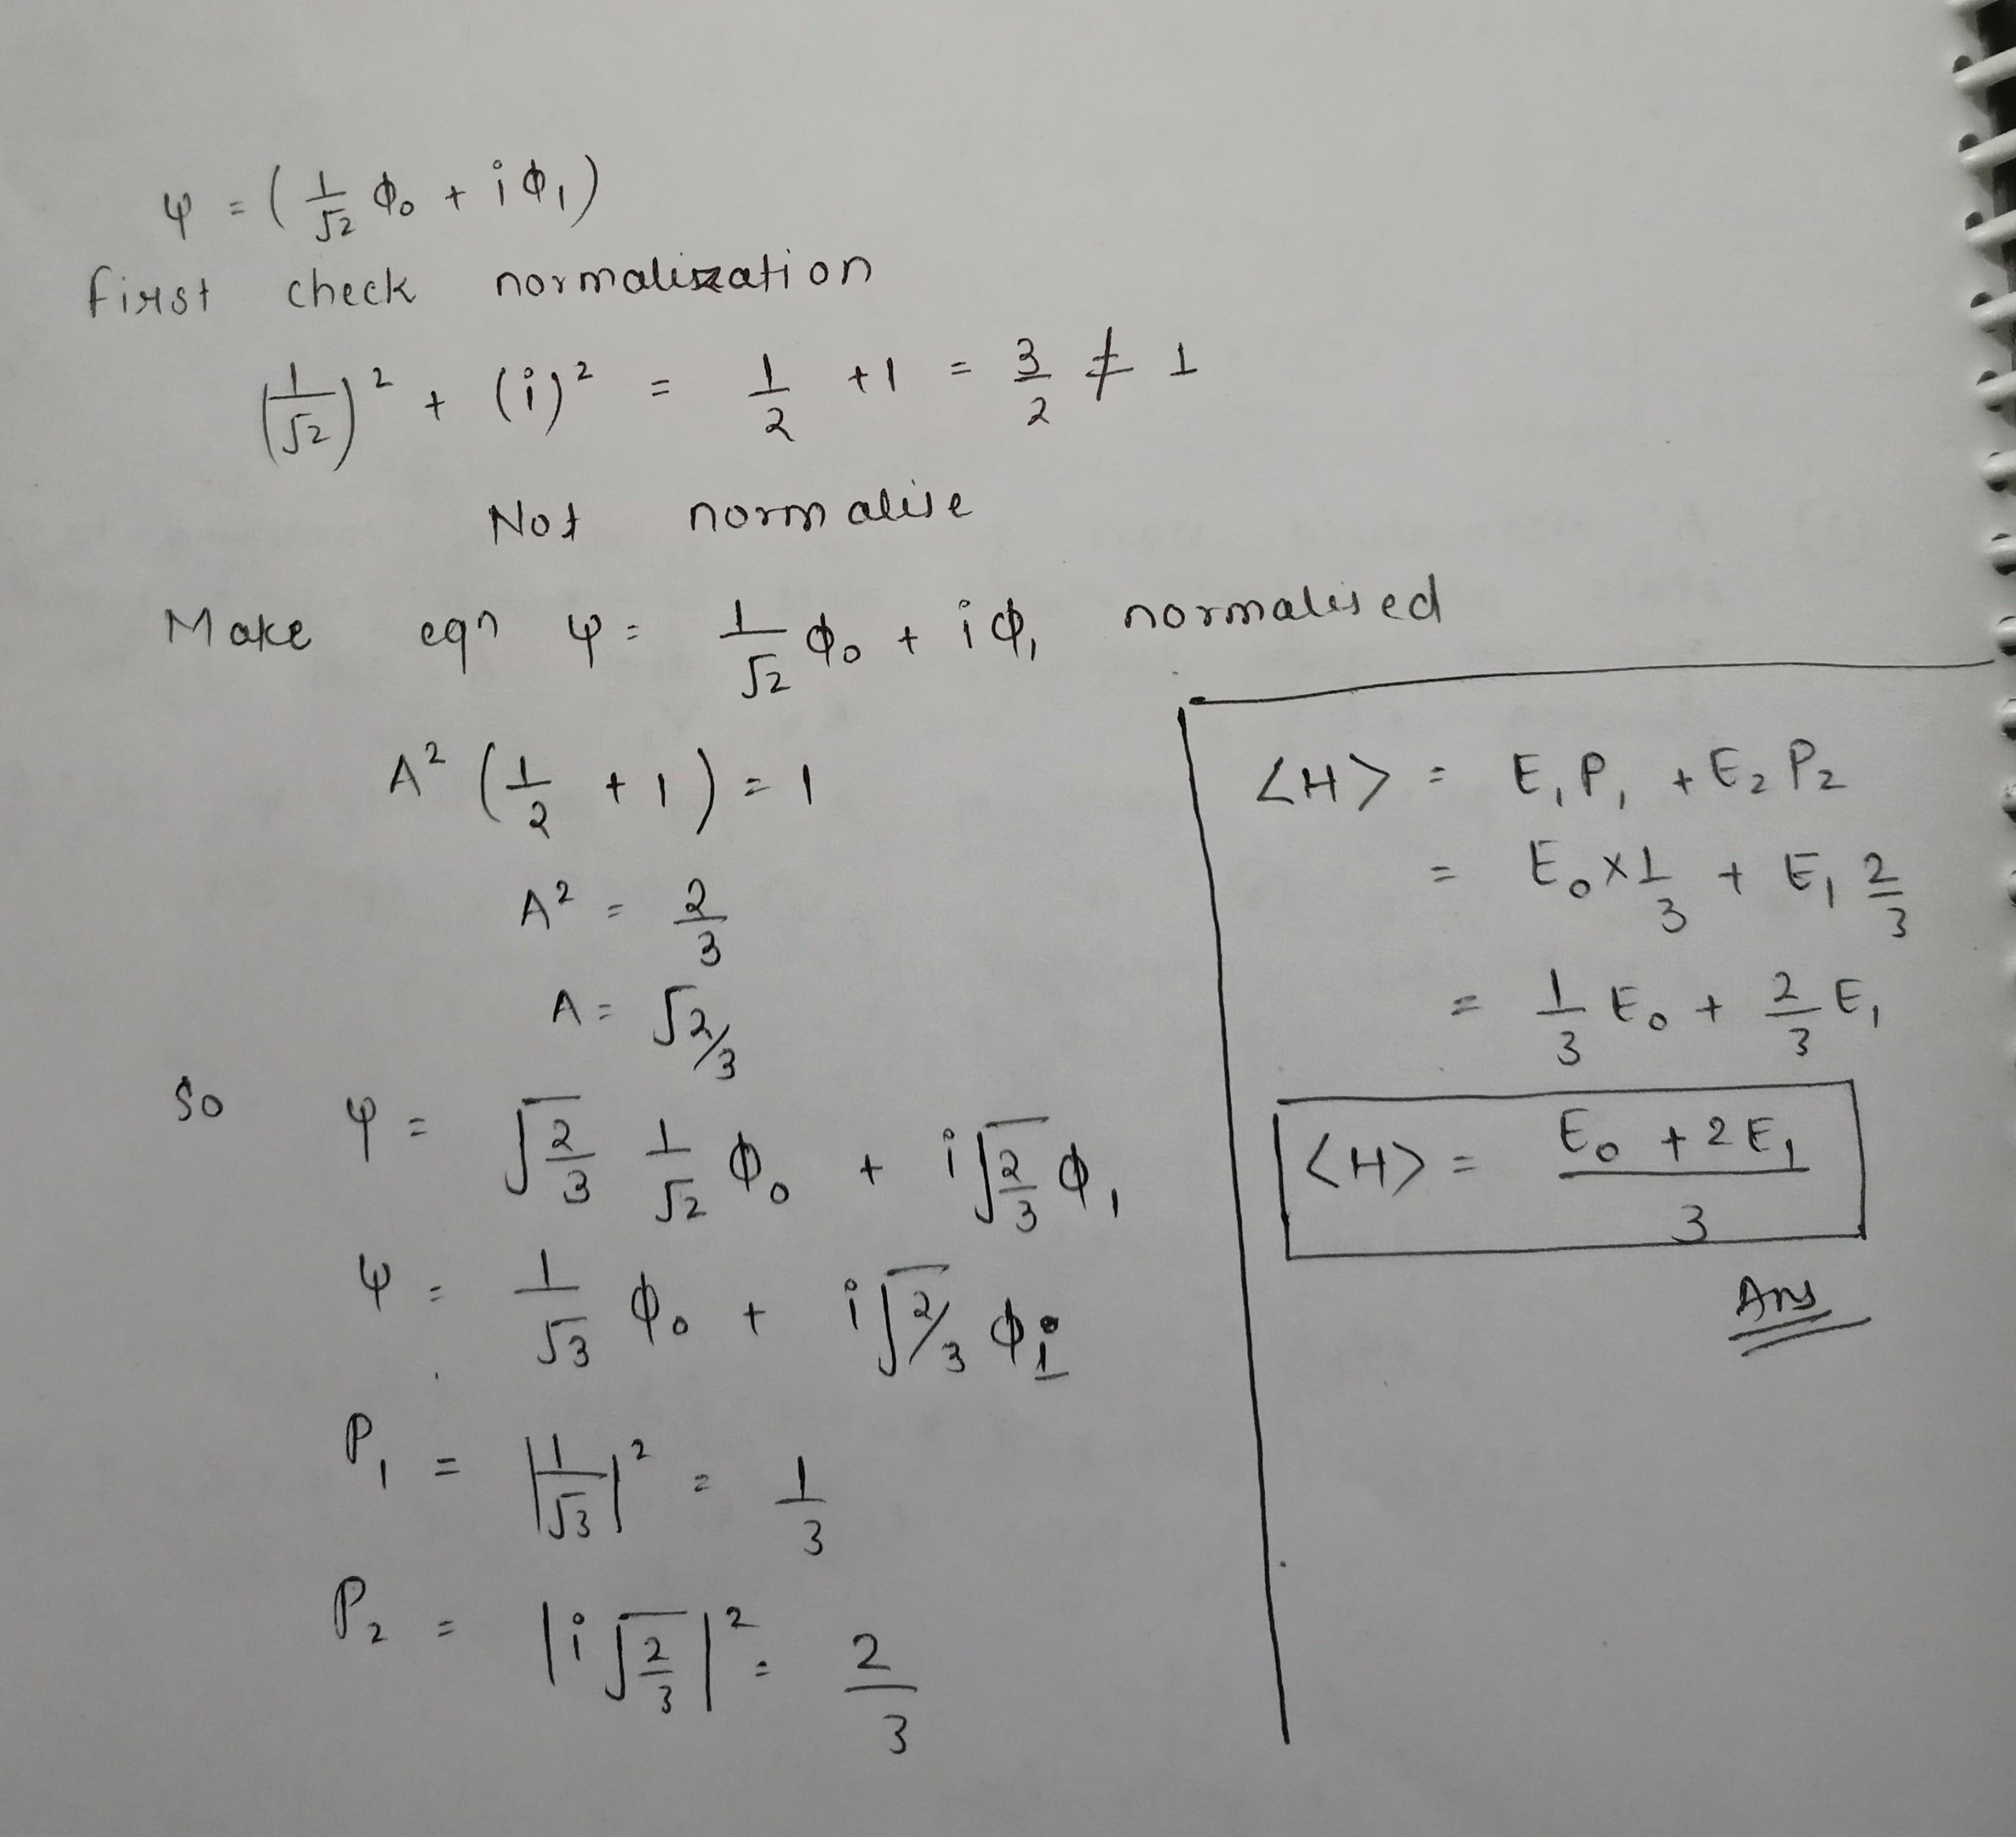 ψ = ( 1/√2 ϕ₀ + i ϕ₁ )
first check normalization
(1/√2)² + (i)² = 1/2 + 1 = 3/2 ≠ 1
Not normalise
Make eqn ψ = 1/√2 ϕ₀ + i ϕ₁ normalised
A² ( 1/2 + 1 ) = 1
A² = 2/3
A = √2/3
So ψ = √(2/3) 1/√2 ϕ₀ + i √(2/3) ϕ₁
ψ = 1/√3 ϕ₀ + i √(2/3) ϕ₁
P₁ = |1/√3|² = 1/3
P₂ = |i √(2/3)|² = 2/3
<H> = E₁ P₁ + E₂ P₂
= E₀ × 1/3 + E₁ 2/3
= 1/3 E₀ + 2/3 E₁
<H> = (E₀ + 2E₁)/3
Ans